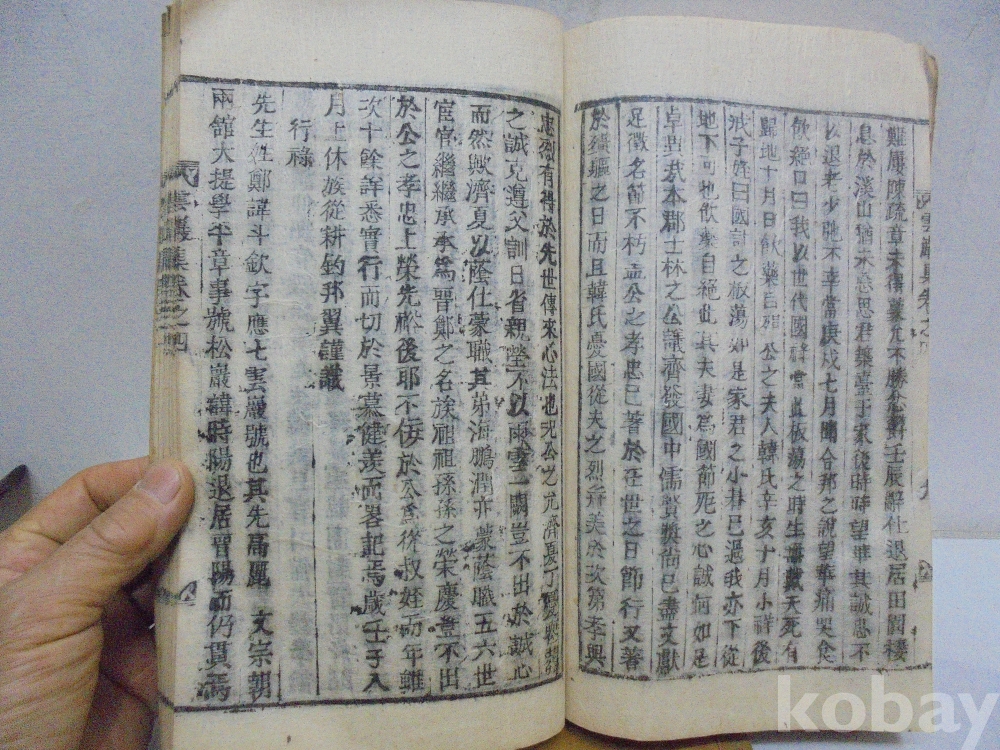 難屢陳疏章未得蒙允不勝忿鬱壬辰辭仕退居田園棲
息於溪山猶未忘思君築臺于家後時時望拜其誠忠不
以退老少弛不幸當庚戌七月聞令邦之說望拜痛哭食
飮絶口曰我以世代國祿當此板蕩之時生戴天死有
歸地十月日飮藥自公之夫人韓氏辛亥十月小祥後
戒子姪曰國計之板蕩如是家君之小朞已過我亦下從
地下可也飮藥自絶此其夫妻爲國節死之心誠何如是
卓異哉本郡士林之公議齊發國中儒贒奬尙已盡文獻
足徵名節不朽孟公之孝忠已著於在世之日節行又著
於殞軀之日而且韓氏憂國從夫之烈幷美於次第孝與
忠烈有得於先世傳來心法也况公之允濟
之誠克遵父訓日省親塋不以雨雪一闕豈不出於誠心
而然歟濟夏以蔭仕蒙職其弟海鵬潤亦蒙蔭職五六世
宦官繼繼承承爲晋鄭之名族祖祖孫孫之榮慶豈不出
於公之孝忠上榮先裕後耶不佞於公爲從叔姪而年雖
次十餘詳悉實行而切於景慕健羨而畧記焉歲壬子入
月上休族從耕釣邦翼謹識
行祿
先生姓鄭諱斗欽字應七雲巖號也其先高麗 文宗朝
兩舘大提學平章事號松巖諱時陽退居晋陽而仍貫焉
雲巖集卷之四
雲巖集卷之
九
kobay